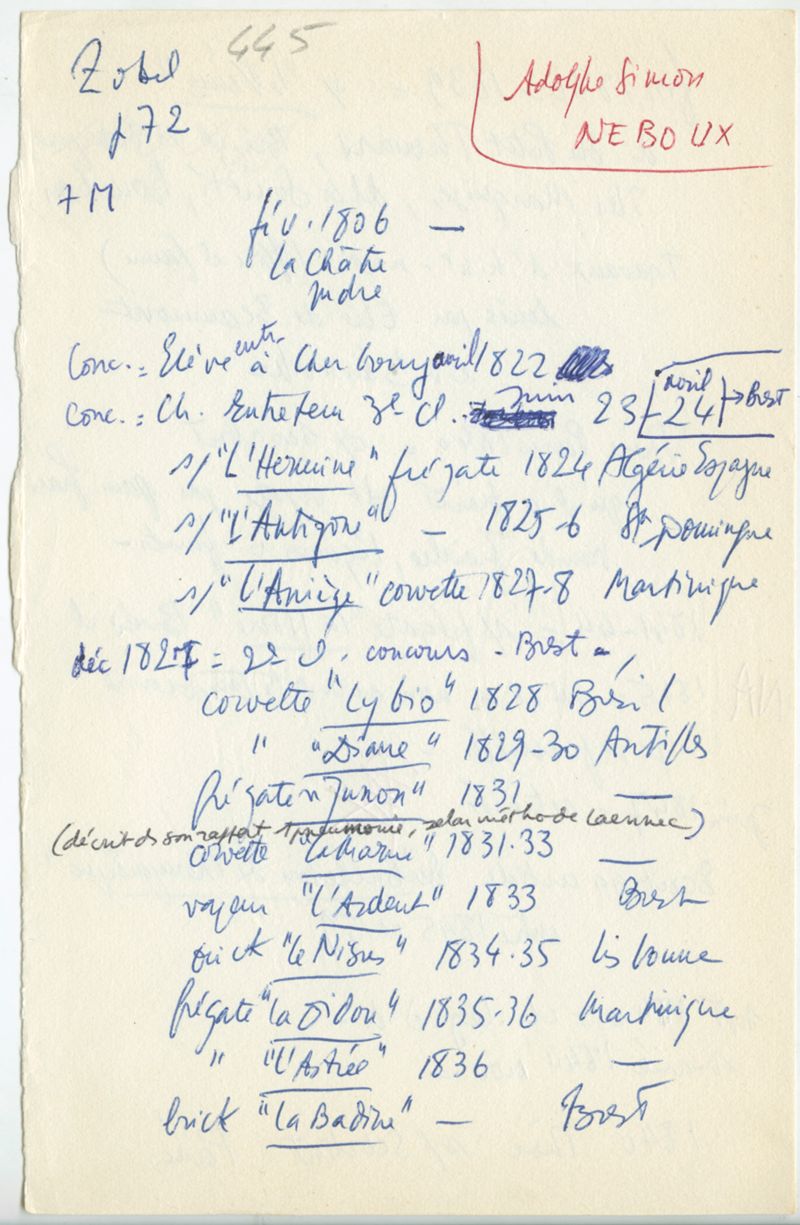 445
Zobel
p72
+M
Adolphe Simon
NEBOUX
fév. 1806 —
La Châtre
Indre
Conc. = Elève entr. à Cherbourg avril 1822
Conc. = Ch. Entretenu 3e Cl. Juin 23 - avril 24 → Brest
s/ "L'Hermine" frégate 1824 Algérie Espagne
s/ "L'Antigone" — 1825-6 St Domingue
s/ "L'Ariège" corvette 1827-8 Martinique
déc 1827 = 2e Cl. concours - Brest -
corvette "Lybio" 1828 Brésil
" "Diane" 1829-30 Antilles
frégate "Junon" 1831 —
(décrit ds son rapport 1 pneumonie, selon méthode Laennec)
corvette "La Marne" 1831.33 —
vapeur "L'Ardent" 1833 Brest
brick "le Nisus" 1834.35 Lisbonne
frégate "La Didon" 1835-36 Martinique
" "L'Astrée" 1836 —
brick "La Badine" — Brest